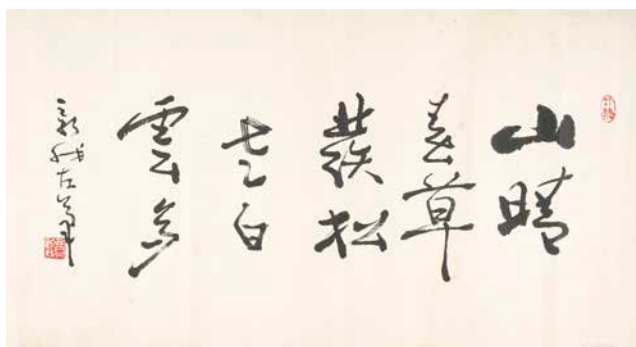 山晴
春草
發松
老白
雲多
新我左筆